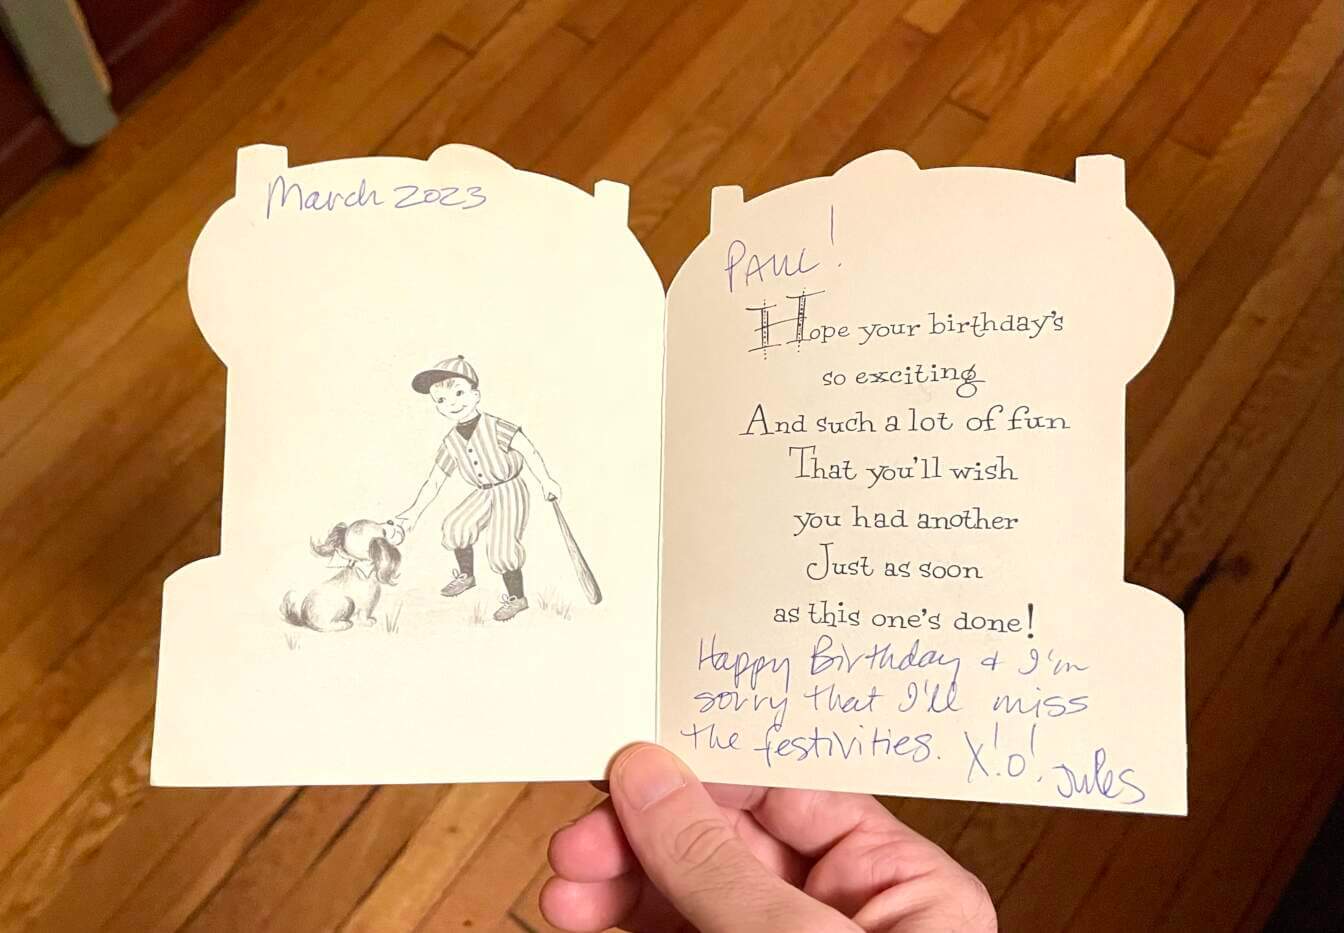 March 2023
PAUL!
Hope your birthday's
so exciting
And such a lot of fun
That you'll wish
you had another
Just as soon
as this one's done!
Happy Birthday & I'm
sorry that I'll miss
the festivities. X!O!
Jules